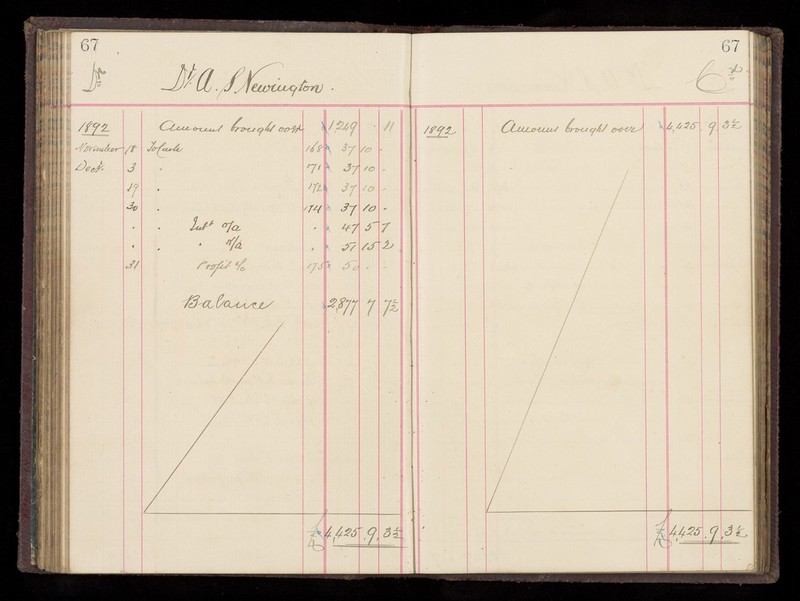 67
Dr
Dr. A. S. Newington.
1892 Amount brought over 1249 - 11
November 18 To Cash 168 37 10 -
Decr. 3 " 171 37 10 -
19 " 172 37 10 -
30 " 174 37 10 -
" " Intt o/a " 47 5 7
" " " 51 15 2
31 Profit a/c 175 50 - -
Balance 2,877 7 7½
£ 4,425 . 9 . 3½
67
Cr.
1892 Amount brought over 4,425 . 9 . 3½
£ 4,425 . 9 . 3½